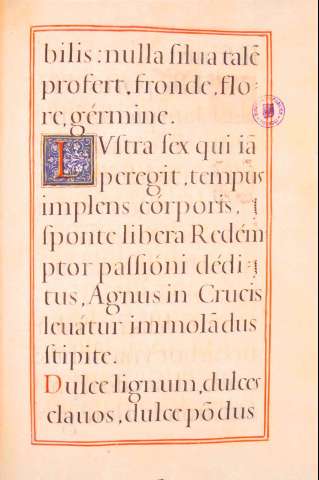 bilis: nulla ſilua talē
profert, fronde, flo-
re, gérmine.
LVſtra ſex qui iā
peregit, tempus
implens córporis,
ſponte libera Redém
ptor paſſióni dédi-
tus, Agnus in Crucis
leuátur immolādus
ſtipite.
Dulce lignum, dulces
clauos, dulce põdus